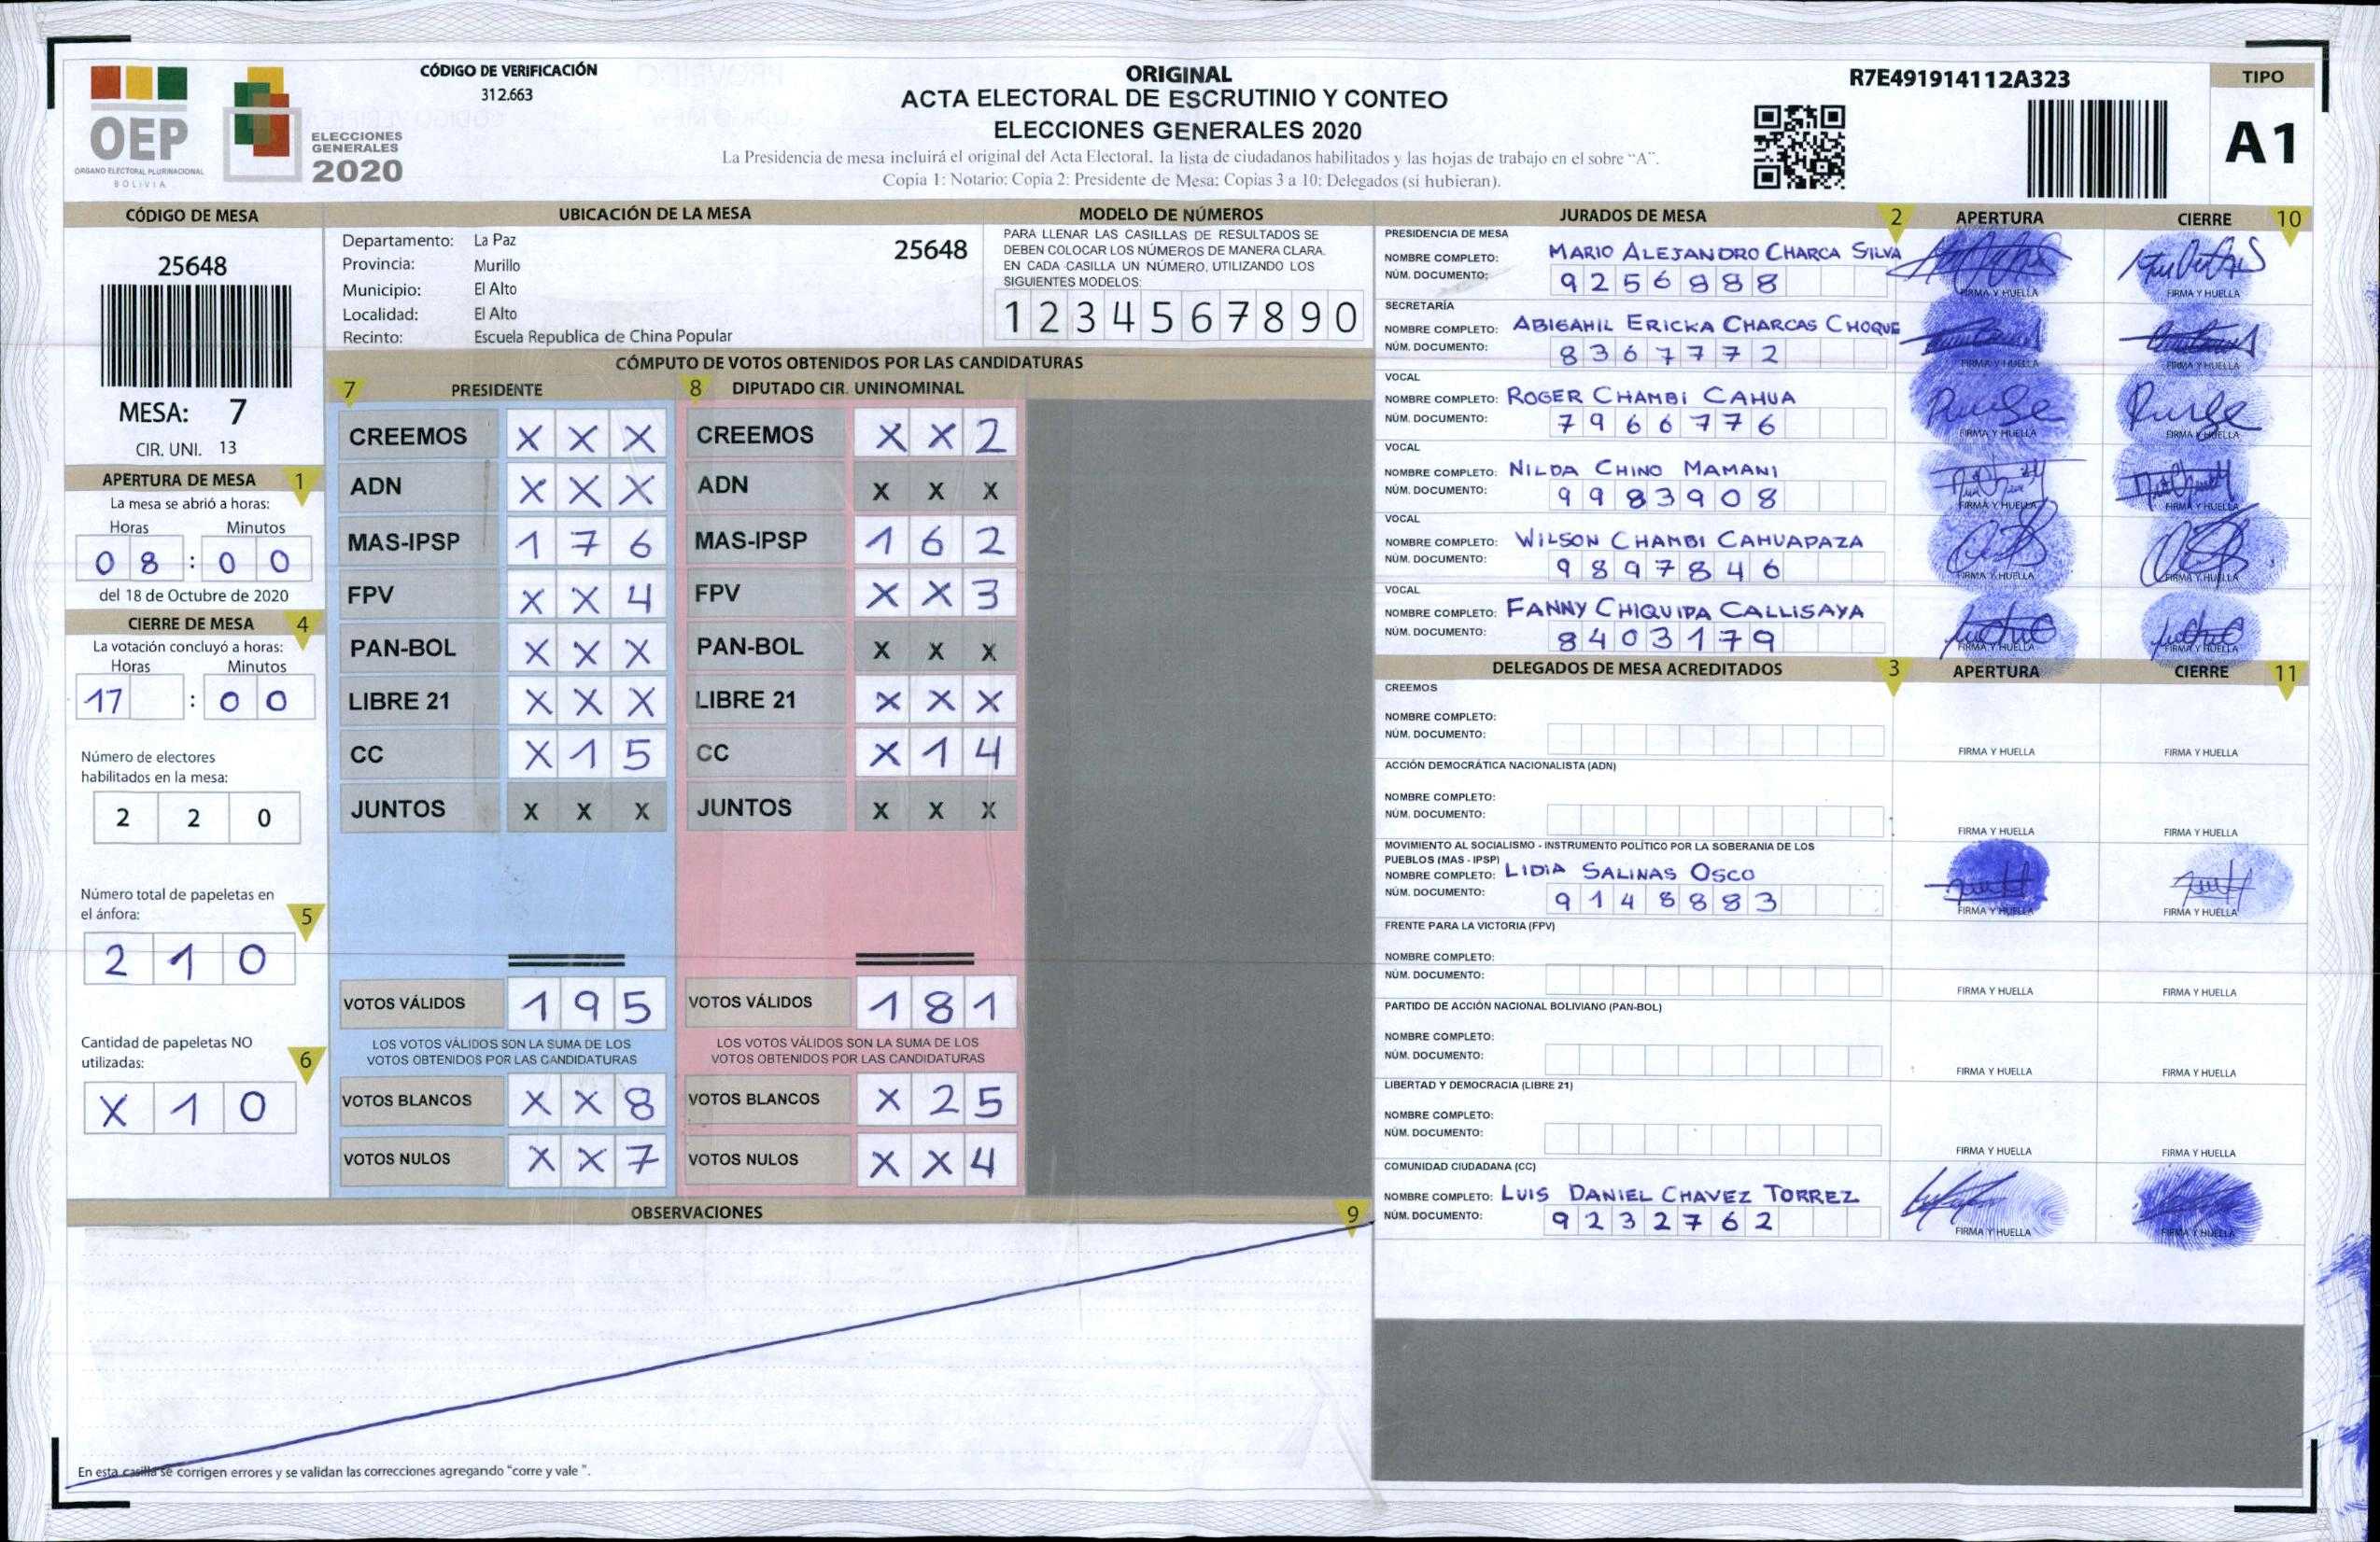 OEP
ÓRGANO ELECTORAL PLURINACIONAL
BOLIVIA
ELECCIONES
GENERALES
2020
CÓDIGO DE VERIFICACIÓN
312.663
ORIGINAL
ACTA ELECTORAL DE ESCRUTINIO Y CONTEO
ELECCIONES GENERALES 2020
La Presidencia de mesa incluirá el original del Acta Electoral, la lista de ciudadanos habilitados y las hojas de trabajo en el sobre “A”.
Copia 1: Notario; Copia 2: Presidente de Mesa; Copias 3 a 10: Delegados (si hubieran).
R7E491914112A323
TIPO
A1
CÓDIGO DE MESA
25648
MESA: 7
CIR. UNI. 13
APERTURA DE MESA 1
La mesa se abrió a horas:
Horas Minutos
0 8 : 0 0
del 18 de Octubre de 2020
CIERRE DE MESA 4
La votación concluyó a horas:
Horas Minutos
17 : 0 0
Número de electores
habilitados en la mesa:
2 2 0
Número total de papeletas en
el ánfora: 5
2 1 0
Cantidad de papeletas NO
utilizadas: 6
X 1 0
UBICACIÓN DE LA MESA
Departamento: La Paz 25648
Provincia: Murillo
Municipio: El Alto
Localidad: El Alto
Recinto: Escuela Republica de China Popular
MODELO DE NÚMEROS
PARA LLENAR LAS CASILLAS DE RESULTADOS SE
DEBEN COLOCAR LOS NÚMEROS DE MANERA CLARA.
EN CADA CASILLA UN NÚMERO, UTILIZANDO LOS
SIGUIENTES MODELOS:
1 2 3 4 5 6 7 8 9 0
CÓMPUTO DE VOTOS OBTENIDOS POR LAS CANDIDATURAS
7 PRESIDENTE 8 DIPUTADO CIR. UNINOMINAL
CREEMOS X X X CREEMOS X X 2
ADN X X X ADN X X X
MAS-IPSP 1 7 6 MAS-IPSP 1 6 2
FPV X X 4 FPV X X 3
PAN-BOL X X X PAN-BOL X X X
LIBRE 21 X X X LIBRE 21 X X X
CC X 1 5 CC X 1 4
JUNTOS X X X JUNTOS X X X
VOTOS VÁLIDOS 1 9 5 VOTOS VÁLIDOS 1 8 1
LOS VOTOS VÁLIDOS SON LA SUMA DE LOS LOS VOTOS VÁLIDOS SON LA SUMA DE LOS
VOTOS OBTENIDOS POR LAS CANDIDATURAS VOTOS OBTENIDOS POR LAS CANDIDATURAS
VOTOS BLANCOS X X 8 VOTOS BLANCOS X 2 5
VOTOS NULOS X X 7 VOTOS NULOS X X 4
OBSERVACIONES 9
En esta casilla se corrigen errores y se validan las correcciones agregando “corre y vale ”.
JURADOS DE MESA 2 APERTURA CIERRE 10
PRESIDENCIA DE MESA
NOMBRE COMPLETO: MARIO ALEJANDRO CHARCA SILVA
NÚM. DOCUMENTO: 9 2 5 6 9 8 8
FIRMA Y HUELLA FIRMA Y HUELLA
SECRETARÍA
NOMBRE COMPLETO: ABIGAHIL ERICKA CHARCAS CHOQUE
NÚM. DOCUMENTO: 8 3 6 7 7 7 2
FIRMA Y HUELLA FIRMA Y HUELLA
VOCAL
NOMBRE COMPLETO: ROGER CHAMBI CAHUA
NÚM. DOCUMENTO: 7 9 6 6 7 7 6
FIRMA Y HUELLA FIRMA Y HUELLA
VOCAL
NOMBRE COMPLETO: NILDA CHINO MAMANI
NÚM. DOCUMENTO: 9 9 8 3 9 0 8
FIRMA Y HUELLA FIRMA Y HUELLA
VOCAL
NOMBRE COMPLETO: WILSON CHAMBI CAHUAPAZA
NÚM. DOCUMENTO: 9 8 9 7 8 4 6
FIRMA Y HUELLA FIRMA Y HUELLA
VOCAL
NOMBRE COMPLETO: FANNY CHIQUIPA CALLISAYA
NÚM. DOCUMENTO: 8 4 0 3 1 7 9
FIRMA Y HUELLA FIRMA Y HUELLA
DELEGADOS DE MESA ACREDITADOS 3 APERTURA CIERRE 11
CREEMOS
NOMBRE COMPLETO:
NÚM. DOCUMENTO:
FIRMA Y HUELLA FIRMA Y HUELLA
ACCIÓN DEMOCRÁTICA NACIONALISTA (ADN)
NOMBRE COMPLETO:
NÚM. DOCUMENTO:
FIRMA Y HUELLA FIRMA Y HUELLA
MOVIMIENTO AL SOCIALISMO - INSTRUMENTO POLÍTICO POR LA SOBERANIA DE LOS
PUEBLOS (MAS - IPSP)
NOMBRE COMPLETO: LIDIA SALINAS OSCO
NÚM. DOCUMENTO: 9 1 4 8 8 8 3
FIRMA Y HUELLA FIRMA Y HUELLA
FRENTE PARA LA VICTORIA (FPV)
NOMBRE COMPLETO:
NÚM. DOCUMENTO:
FIRMA Y HUELLA FIRMA Y HUELLA
PARTIDO DE ACCIÓN NACIONAL BOLIVIANO (PAN-BOL)
NOMBRE COMPLETO:
NÚM. DOCUMENTO:
FIRMA Y HUELLA FIRMA Y HUELLA
LIBERTAD Y DEMOCRACIA (LIBRE 21)
NOMBRE COMPLETO:
NÚM. DOCUMENTO:
FIRMA Y HUELLA FIRMA Y HUELLA
COMUNIDAD CIUDADANA (CC)
NOMBRE COMPLETO: LUIS DANIEL CHAVEZ TORREZ
NÚM. DOCUMENTO: 9 2 3 2 7 6 2
FIRMA Y HUELLA FIRMA Y HUELLA